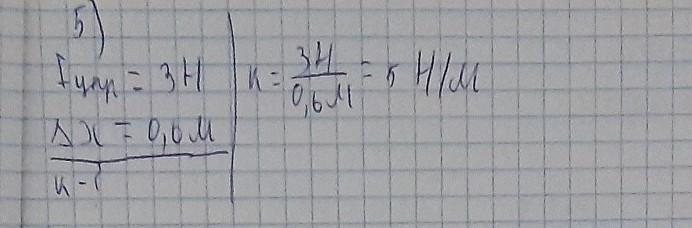 5)
Fупр = 3Н
Δx = 0,6м
к - ?
к = 3Н / 0,6м = 5 Н/м